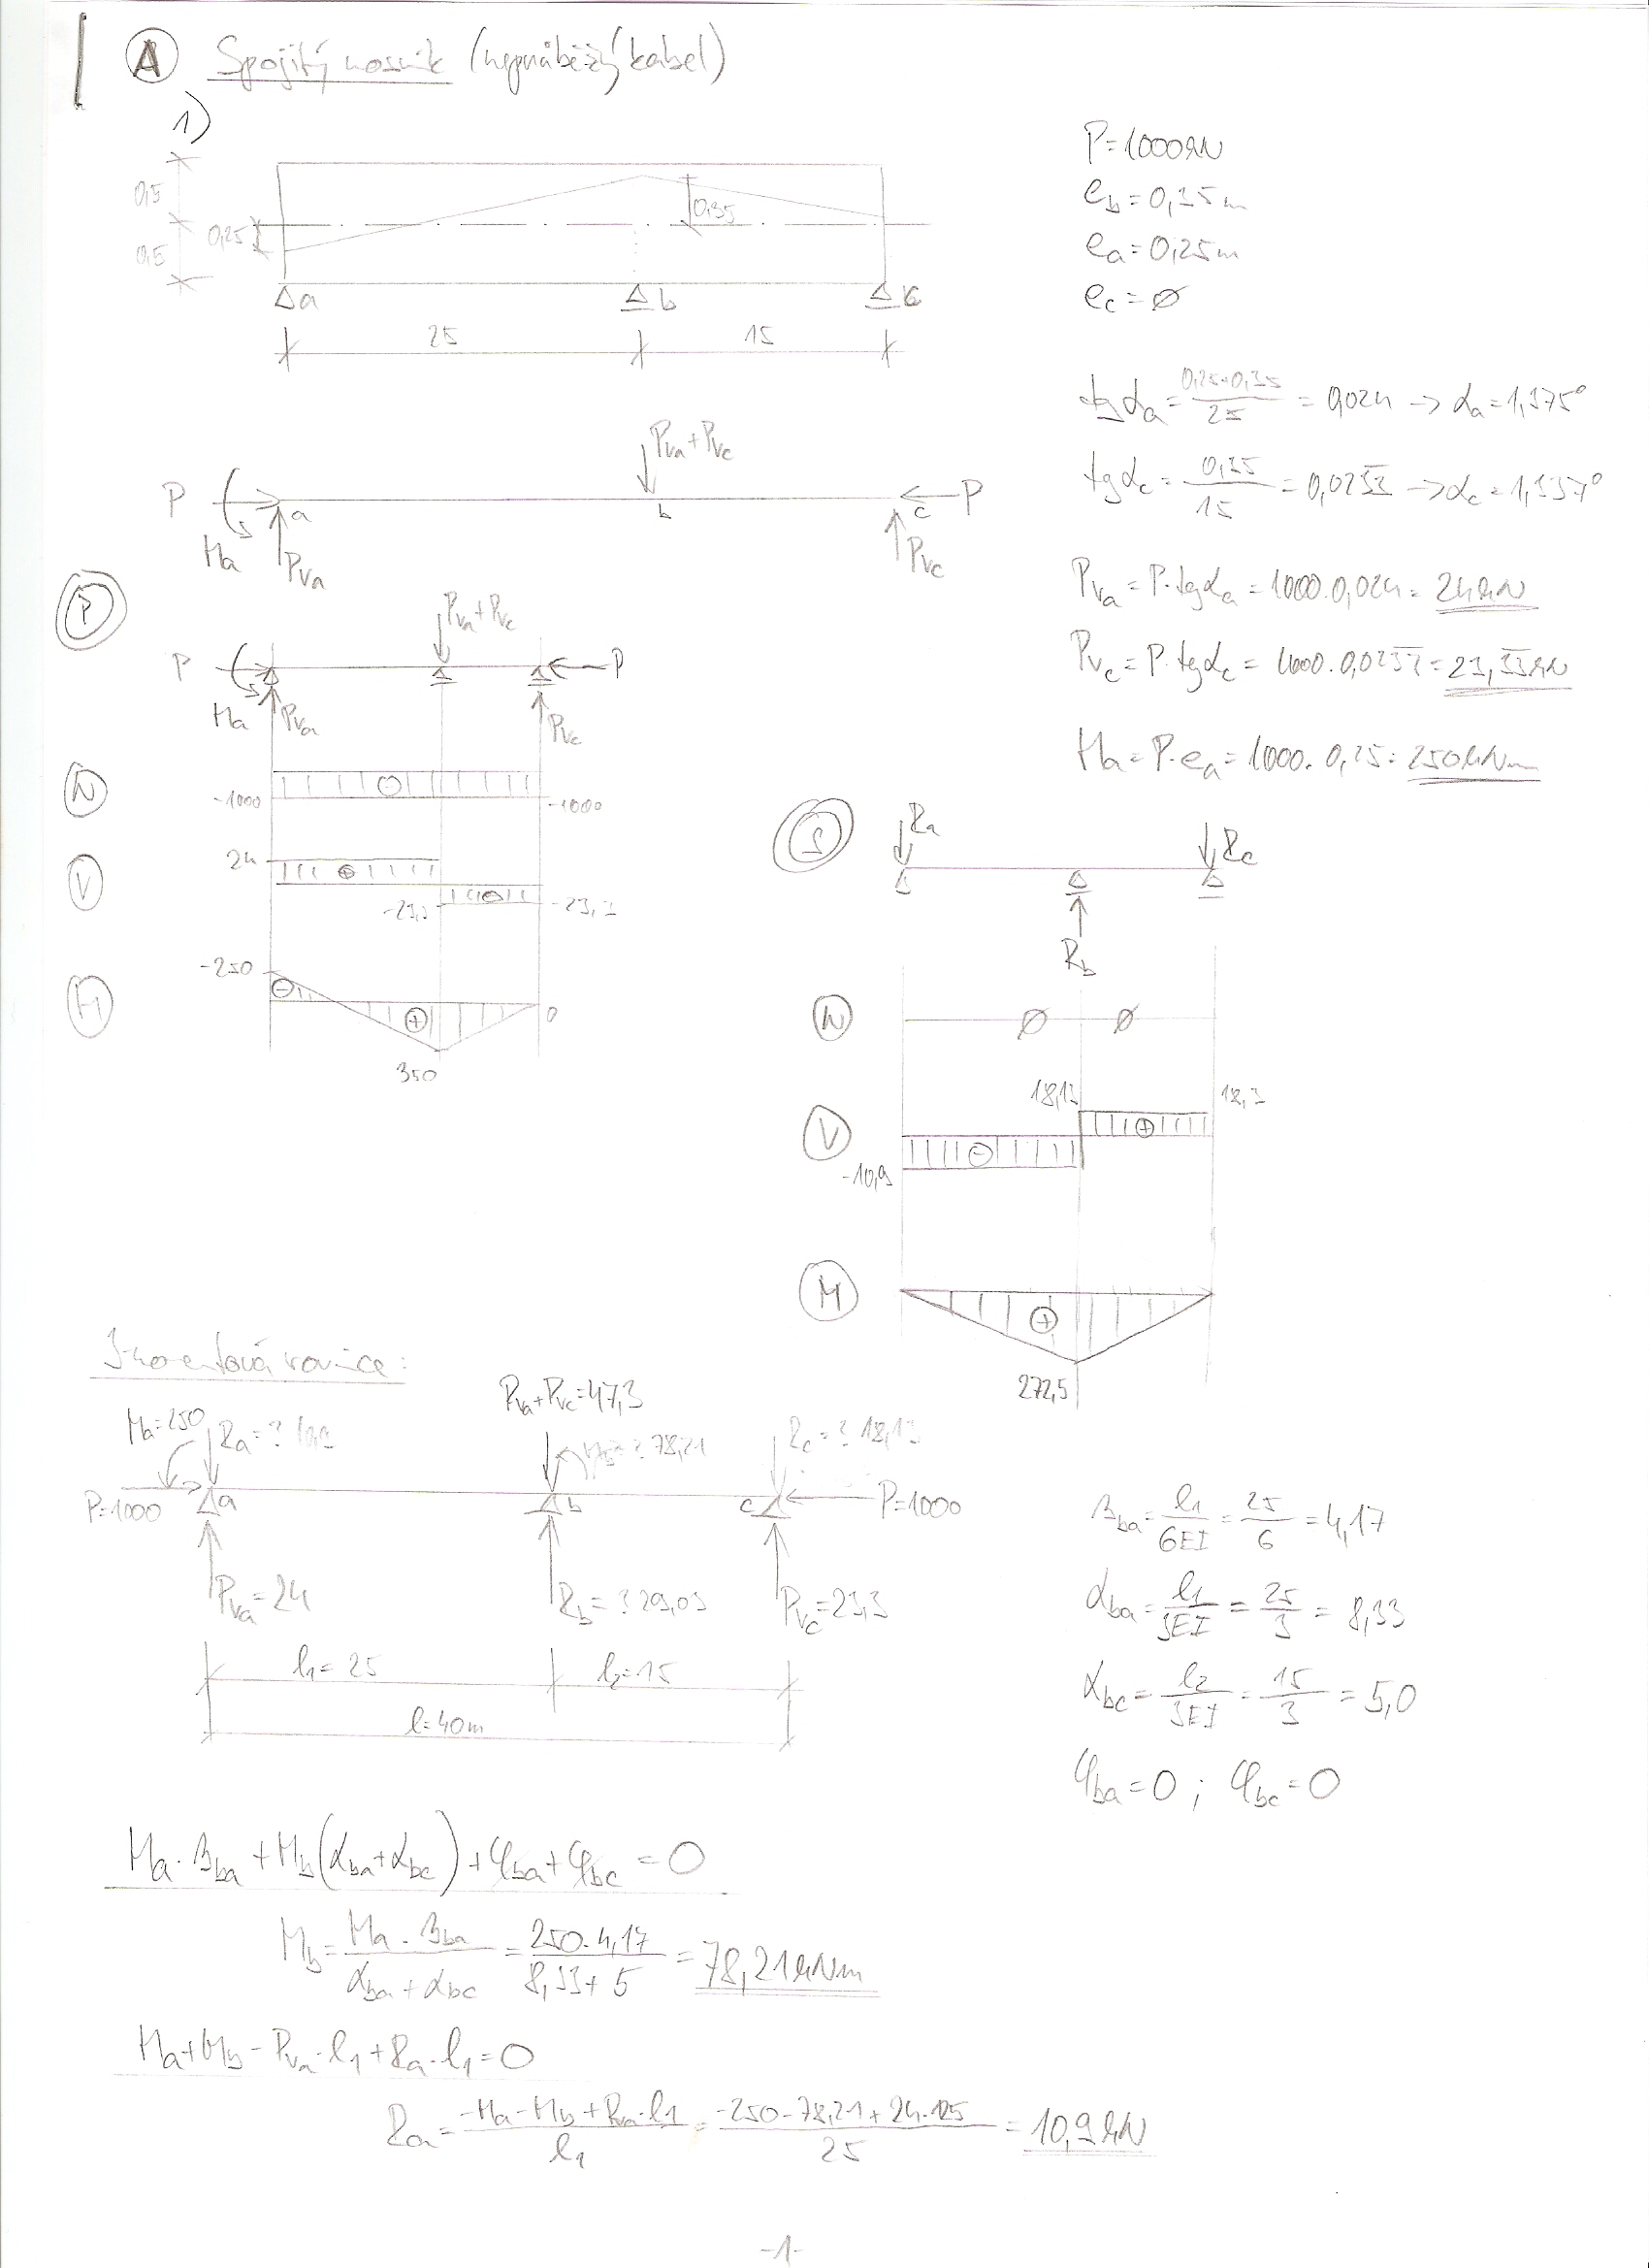 A Spojitý nosník (neprůběžný kabel)
1)
P=1000kN
e_b = 0,35m
e_a = 0,25m
e_c = ∅
0,5
0,5
0,25
0,35
Δa
b
c
25
15
tgα_a = (0,25+0,35)/25 = 0,024 → α_a = 1,375°
tgα_c = 0,35/15 = 0,0233 → α_c = 1,337°
P_va + P_vc
P
a
b
c
P
M_a
P_va
P_vc
P_va = P·tgα_a = 1000·0,024 = 24kN
P_vc = P·tgα_c = 1000·0,0233 = 23,33kN
M_a = P·e_a = 1000·0,25 = 250kNm
P
P_va + P_vc
P
P
M_a
P_va
P_vc
N
-1000
⊖
-1000
V
24
⊕
-23,3
⊖
-23,3
M
-250
⊖
⊕
0
350
S
R_a
R_c
R_b
N
∅
∅
V
18,13
18,3
⊖
⊕
-10,9
M
⊕
272,5
3-momentová rovnice:
P_va + P_vc = 47,3
M_a = 250
R_a = ? 10,9
M_b = ? 78,21
R_c = ? 18,13
P=1000
a
b
c
P=1000
P_va = 24
R_b = ? 29,03
P_vc = 23,3
l_1 = 25
l_2 = 15
l = 40m
β_ba = l_1/6EI = 25/6 = 4,17
α_ba = l_1/3EI = 25/3 = 8,33
α_bc = l_2/3EI = 15/3 = 5,0
φ_ba = 0 ; φ_bc = 0
M_a·β_ba + M_b(α_ba + α_bc) + φ_ba + φ_bc = 0
M_b = M_a·β_ba/(α_ba + α_bc) = 250·4,17/(8,33+5) = 78,21kNm
M_a + M_b - P_va·l_1 + R_a·l_1 = 0
R_a = (-M_a - M_b + P_va·l_1)/l_1 = (-250 - 78,21 + 24·25)/25 = 10,9kN
-1-